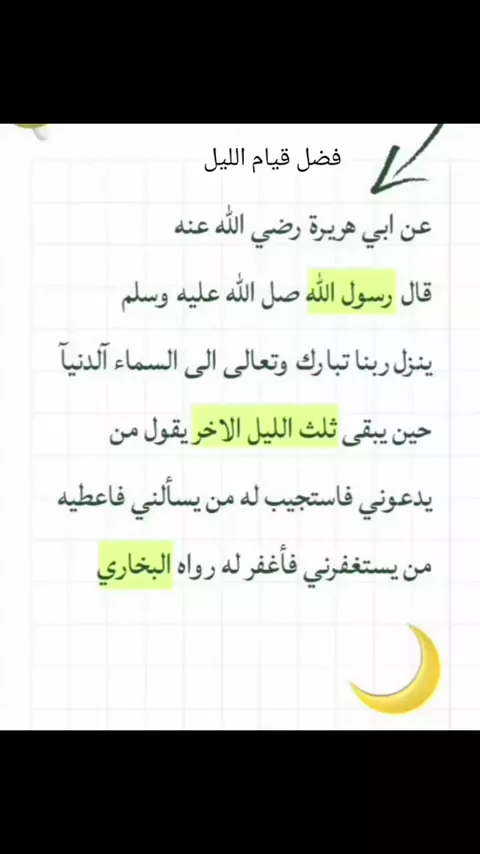 فضل قيام الليل
عن ابي هريرة رضي الله عنه
قال رسول الله صل الله عليه وسلم
ينزل ربنا تبارك وتعالى الى السماء آلدنيآ
حين يبقى ثلث الليل الاخر يقول من
يدعوني فاستجيب له من يسألني فاعطيه
من يستغفرني فأغفر له رواه البخاري